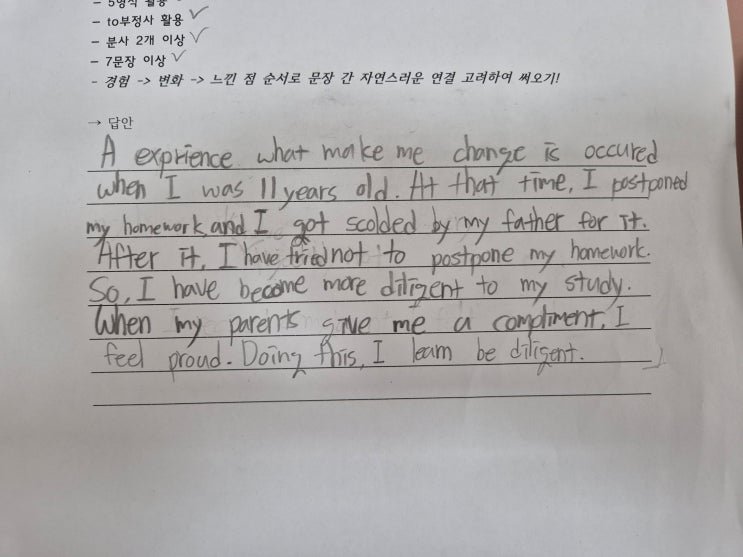 - 5형식 활용
- to부정사 활용 ✓
- 분사 2개 이상 ✓
- 7문장 이상 ✓
- 경험 -> 변화 -> 느낀 점 순서로 문장 간 자연스러운 연결 고려하여 써오기!
→ 답안
A exprience what make me change is occured
when I was 11 years old. At that time, I postponed
my homework, and I got scolded by my father for it.
After it, I have tried not to postpone my homework.
So, I have become more diligent to my study.
When my parents give me a compliment, I
feel proud. Doing this, I learn be diligent.